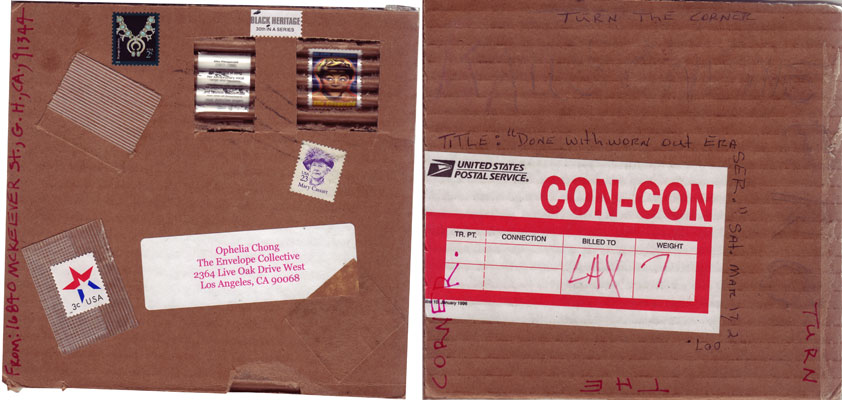 From: 16840 McKEEVER St., G. H., CA., 91344
BLACK HERITAGE
30th IN A SERIES
23
Mary Cassatt
3c USA
Ophelia Chong
The Envelope Collective
2364 Live Oak Drive West
Los Angeles, CA 90068
TURN THE CORNER
TITLE: "DONE with WORN OUT ERA
SER." Sat. MAR 17, 2
UNITED STATES
POSTAL SERVICE®
CON-CON
TR. PT. CONNECTION BILLED TO WEIGHT
LAX 7
January 1996
TURN
THE
CORNER.